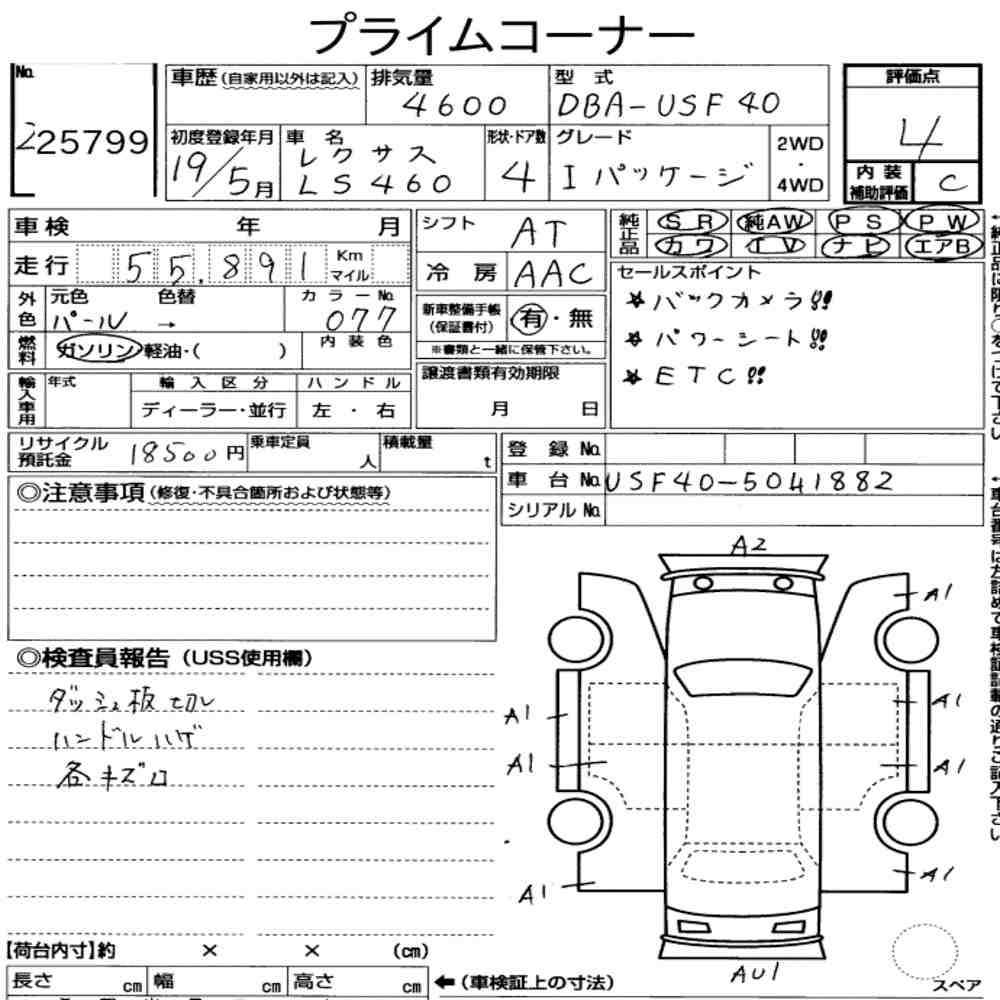 プライムコーナー
No.
225799
車歴 (自家用以外は記入)
排気量
4600
型式
DBA-USF40
評価点
4
内装補助評価
C
初度登録年月
19/5月
車名
レクサス
LS460
形状・ドア数
4
グレード
I パッケージ
2WD
・
4WD
車検 年 月
走行 55,891 Km マイル
シフト
AT
冷房 AAC
純正品 SR 純AW PS PW
カワ TV ナビ エアB
セールスポイント
★バックカメラ!!
★パワーシート!!
★ETC!!
外色 元色 色替 カラーNo.
パール → 077
燃料 ガソリン・軽油・( )
内装色
新車整備手帳
(保証書付)
有・無
※書類と一緒に保管下さい。
譲渡書類有効期限
月 日
輸入車用 年式 輸入区分 ハンドル
ディーラー・並行 左・右
リサイクル預託金 18500円
乗車定員 人
積載量 t
登録No.
車台No. USF40-5041882
シリアルNo.
◎注意事項 (修復・不具合箇所および状態等)
◎検査員報告 (USS使用欄)
ダッシュ板切レ
ハンドルハゲ
各キズ口
A2
A1
A1
A1
A1
A1
A1
A1
AU1
スペア
【荷台内寸】約 × × (cm)
長さ cm 幅 cm 高さ cm
←(車検証上の寸法)
←純正品に限り○をつけて下さい
←車台番号は左詰めで車検証記載の通りご記入下さい